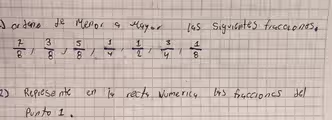 1) ordeno de Menor a Mayor las siguientes fracciones.
7/8, 3/8, 5/8, 1/4, 1/2, 3/4, 1/8
2) Represente en la recta Numerica las fracciones del
Punto 1.